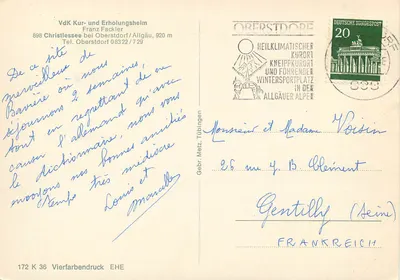 VdK Kur- und Erholungsheim
Franz Fackler
898 Christlessee bei Oberstdorf/Allgäu, 920 m
Tel. Oberstdorf 08322/729
De ce site
merveilleux de
Bavière où nous
séjournons 2 semaines,
tout en regrettant de ne
causer l'allemand qu'avec
le dictionnaire, nous vous
envoyons nos bonnes amitiés
temps très médiocre
Louis et
Marcelle
172 K 36 Vierfarbendruck EHE
Gebr. Metz, Tübingen
OBERSTDORF
HEILKLIMATISCHER
KURORT
KNEIPPKURORT
UND FÜHRENDER
WINTERSPORTPLATZ
IN DEN
ALLGÄUER ALPEN
DEUTSCHE BUNDESPOST
20
898
Monsieur et Madame Voisin
26 rue F. B. Clément
Gentilly (Seine)
FRANKREICH